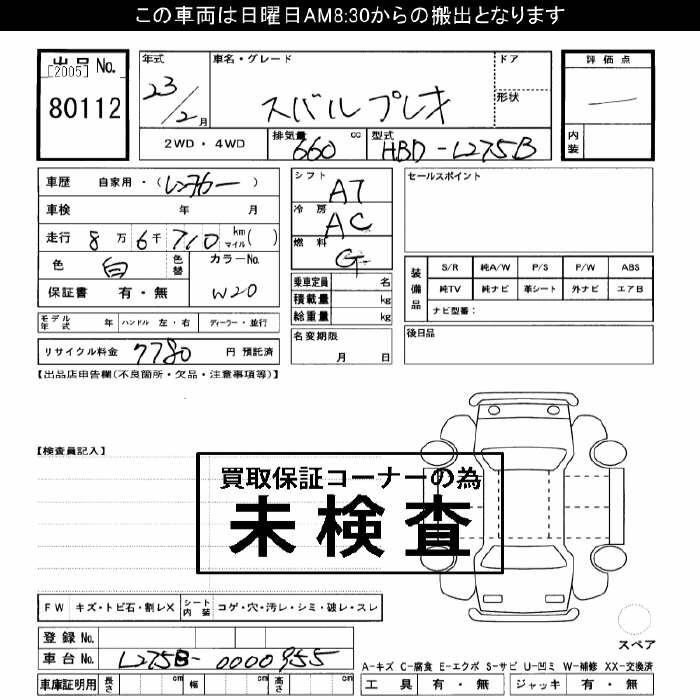 この車両は日曜日AM8:30からの搬出となります
出品 No.
[2005]
80112
年式 23/2月
車名・グレード スバル プレオ
ドア
形状
評価点
内装
2WD・4WD 排気量 660 cc 型式 HBD-L275B
車歴 自家用・(レンタカー)
車検 年 月
走行 8万6千710 km マイル( )
色 白 色替 カラーNo. W20
保証書 有・無
シフト AT
冷房 AC
燃料 G
乗車定員 名
積載量 kg
総重量 kg
名変期限
月 日
セールスポイント
装備品
S/R 純A/W P/S P/W ABS
純TV 純ナビ 革シート 外ナビ エアB
ナビ型番：
後日品
モデル年式 年 ハンドル 左・右 ディーラー・並行
リサイクル料金 7780 円 預託済
【出品店申告欄(不良箇所・欠品・注意事項等)】
【検査員記入】
買取保証コーナーの為
未検査
FW キズ・トビ石・割レX シート内装 コゲ・穴・汚レ・シミ・破レ・スレ
登録 No.
車台 No. L275B-0000955
車庫証明用 長さ cm 幅 cm 高さ cm
スペア
A-キズ C-腐食 E-エクボ S-サビ U-凹ミ W-補修 XX-交換済
工具 有・無 ジャッキ 有・無